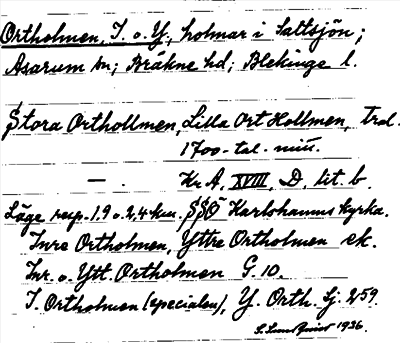 Ortholmen, I. o. Y., holmar i Saltsjön;
Asarum sn; Bräkne hd; Blekinge l.
Stora Orthollmen, Lilla Ort Hollmen, Trol.
1700-tal. min.
— . Kr. A. XVIII, D, lit. b.
Läge resp. 1,9 o. 2,4 km. SSO Karlshamns kyrka.
Inre Ortholmen, Yttre Ortholmen ek.
Inr. o. Ytt. Ortholmen G. 10.
I. Ortholmen (specialen), Y. Orth. Sj. 259.
1936.